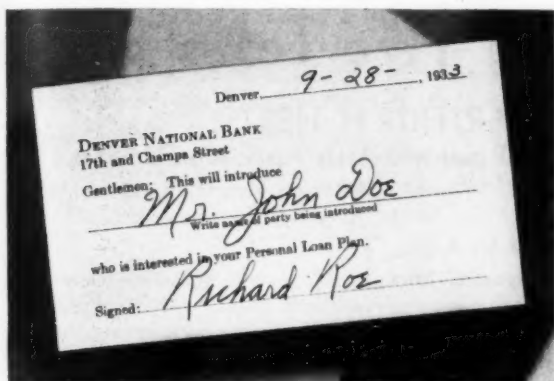 Denver 9-28-, 1933
DENVER NATIONAL BANK
17th and Champa Street
Gentlemen: This will introduce
Mr. John Doe
Write name of party being introduced
who is interested in your Personal Loan Plan.
Signed: Richard Roe